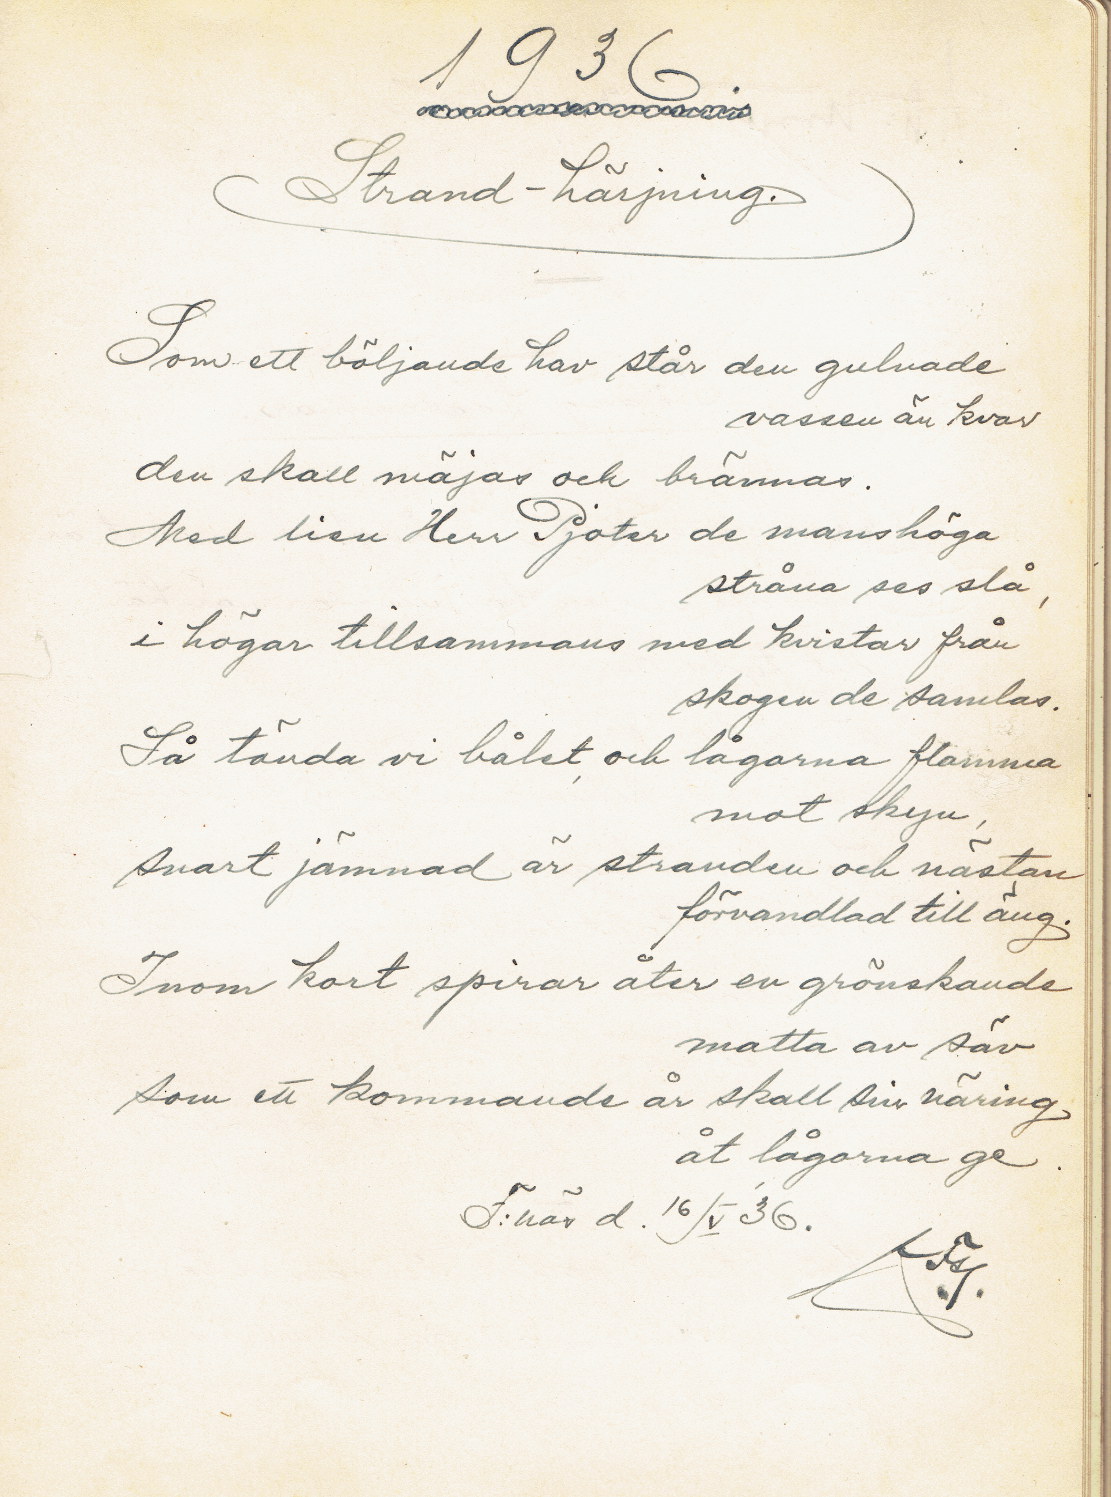 1936
Strand-härjning.
Som ett böljande hav står den gulnade
vassen än kvar
den skall mäjas och brännas.
Med lien Herr Pjoter de manshöga
stråna ses slå,
i högar tillsammans med kvistar från
skogen de samlas.
Så tända vi bålet, och lågorna flamma
mot skyn,
snart jämnad är stranden och nästan
förvandlad till äng.
Inom kort spirar åter en grönskande
matta av säv
som ett kommande år skall sin näring
åt lågorna ge.
F:näs d. 16/V 36.